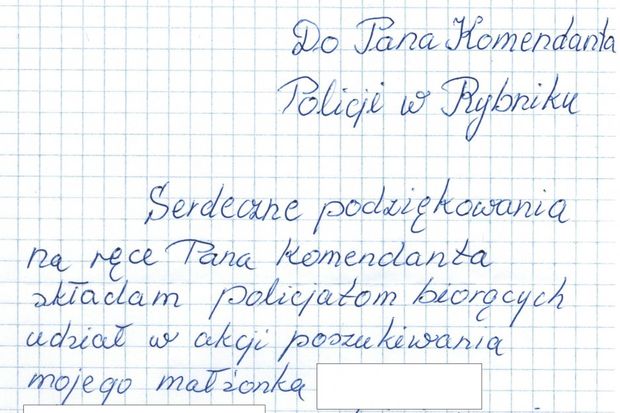 Do Pana Komendanta
Policji w Rybniku
Serdeczne podziękowania
na ręce Pana Komendanta
składam policjatom biorących
udział w akcji poszukiwania
mojego małżonka